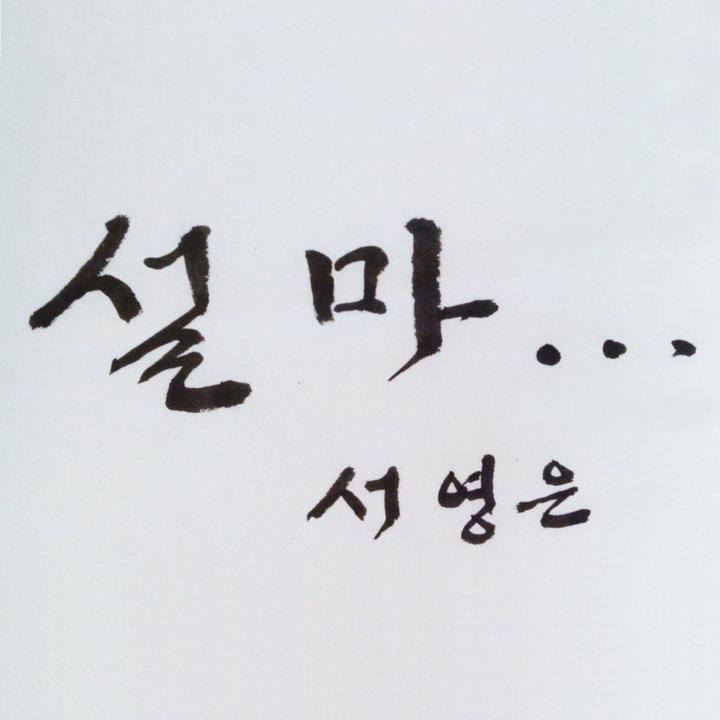 설마...
서영은